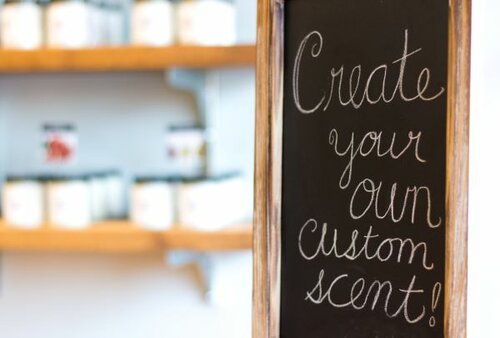 Create
your
own
custom
scent!